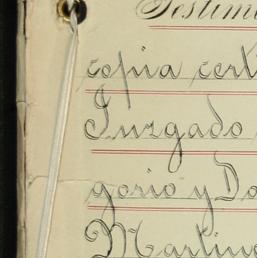 Testimo
copia certi
Juzgado
gorio y Do
Martine